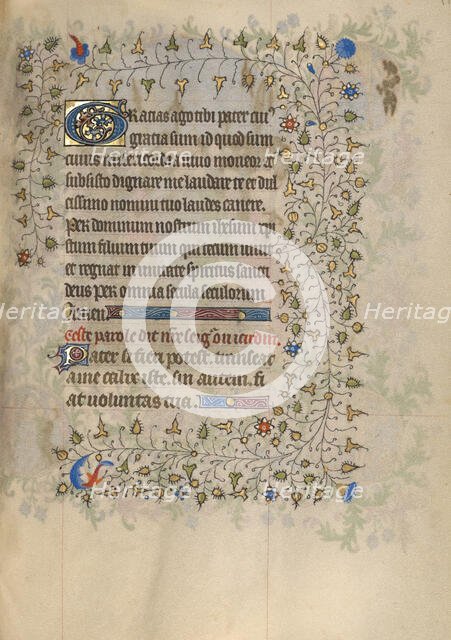 Gratias ago tibi pater cui
gratia sum id quod sum
cuius in te
subsisto dignare me laudare te et dul
cissimo nomini tuo laudes canere.
Per dominum nostrum ihesum cri
stum filium tuum qui tecum uiuit
et regnat in unitate spiritus sancti
deus per omnia secula seculorum
Amen
Ceste parole dit nre seigr on iardin
Pater si fieri potest. transeat
a me calix iste. sin autem. fi
at voluntas tua.
Heritage Images
Heritage Images
Heritage Images
Heritage Images
Heritage Images
Heritage Images
©